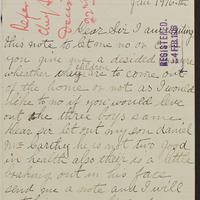 Jan 1916
Dear Sir I am writing
this note to let me no on
you give me a desided
wheather they are to come out
of the home or not as I would
like to no if you would leve
out the three boys same
dear Sir let out my son daniel
mc Carthy he is not two good
in health also their is a little
breaking out in his face
send me a note and I will
REGISTERED
4 FEB 1916